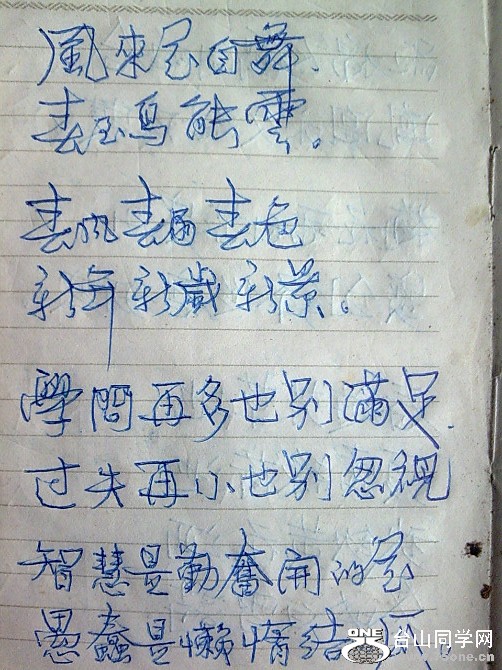 風來花自舞.
春至鳥能雲。
春风春雨春色
新年新歲新景。
學問再多也别滿足.
过失再小也别忽视
智慧是勤奮開的花
愚蠢是懒惰结
ONE
台山同学网
.cn